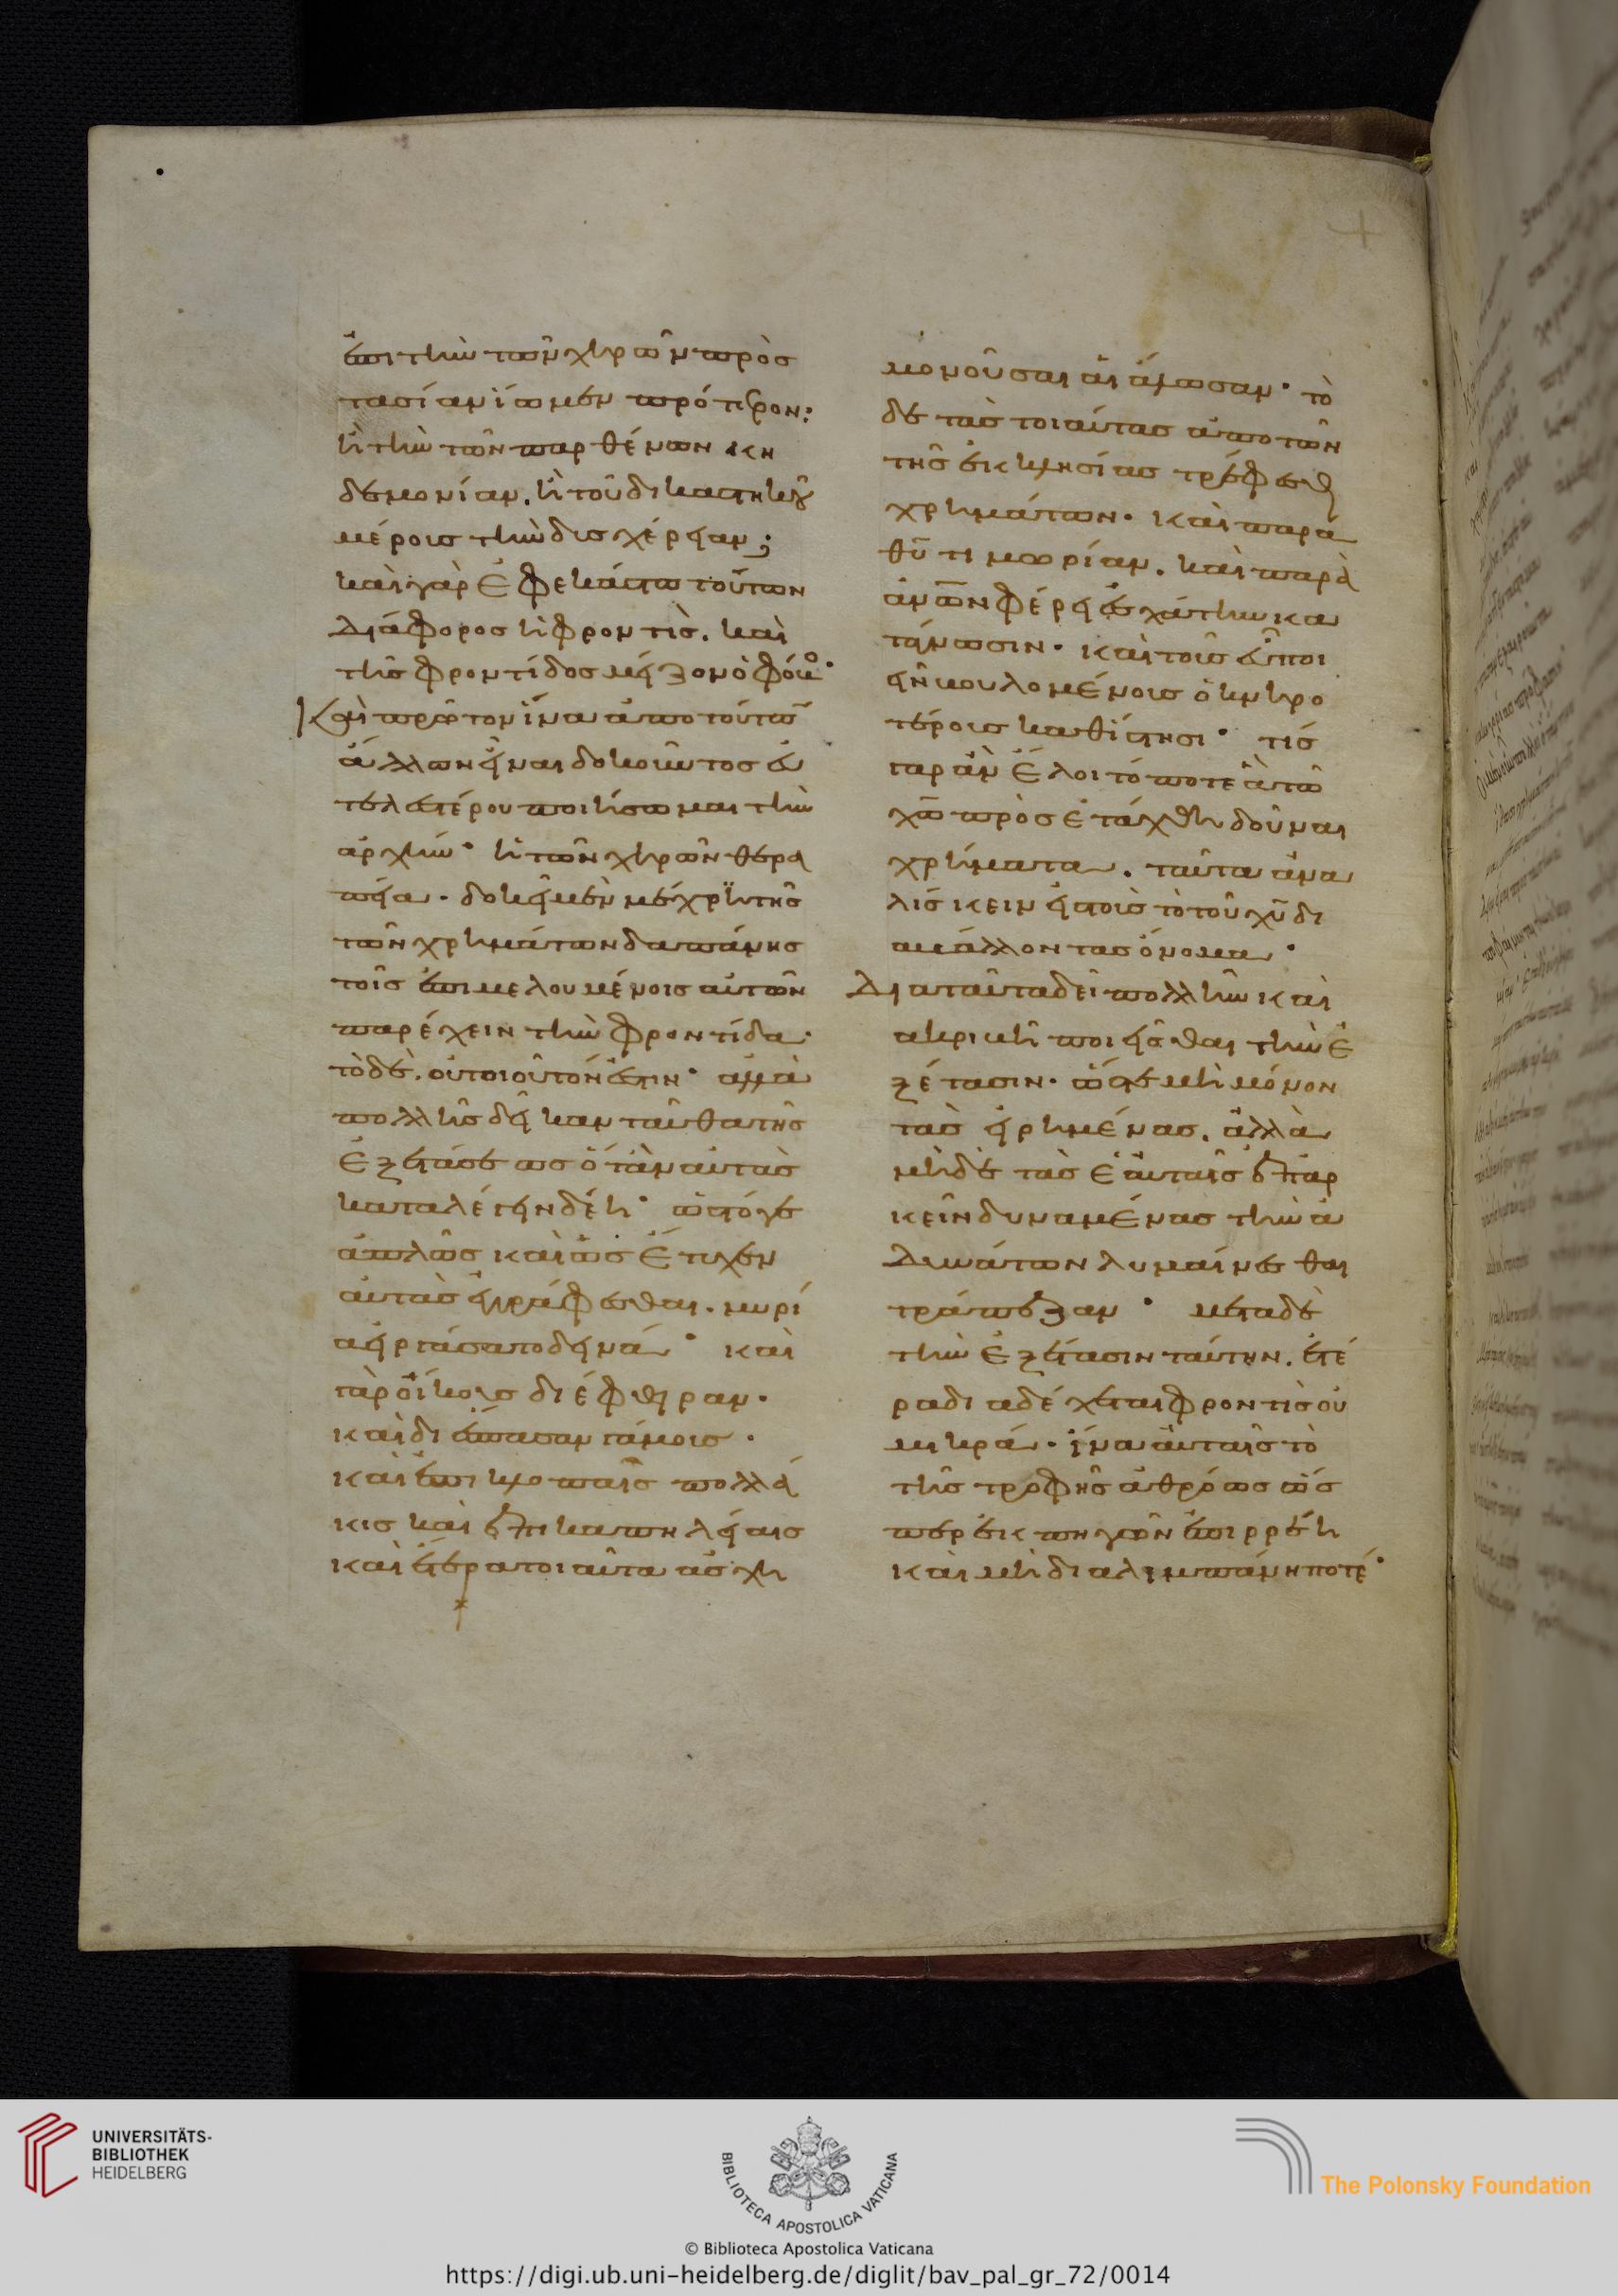 ἐπι τὴν τῶν χηρῶν πρὸσ
τασίαν ἴωμεν πρότερον:
ἢ τὴν τῶν παρθένων κη
δεμονίαν. ἢ τοῦ δικαστικοῦ
μέρους τὴν δυσχέρειαν;
καὶ γὰρ ἐφ ἑκάστω τούτων
Διάφορος ἡ φροντὶς. καὶ
τῆς φροντίδος μεῖζον ὁ φόβος·
Καὶ πρῶτον ἵνα ἀπο τούτων
ἄλλων εἶναι δοκοῦντος εὐ
τελεστέρου ποιήσωμαι τὴν
ἀρχήν· ἡ τῶν χηρῶν θερα
πεία. δοκεῖ μὲν μέχρι τῆς
τῶν χρημάτων δαπάνης
τοῖς ἐπιμελουμένοις αὐτῶν
παρέχειν τὴν φροντίδα·
τὸ δὲ. οὐ τοιοῦτόν ἐστιν· ἀλλὰ
πολλῆς δεῖ κανταῦθα τῆς
ἐξετάσεως ὅταν αὐτὰς
καταλέγειν δέη· ὡς τόγε
ἁπλῶς καὶ ὡς ἔτυχεν
αὐτὰς ἐγγράφεσθαι. μυρί
α εἰργάσατο δεινά· καὶ
γὰρ οἴκους διέφθειραν.
καὶ διέσπασαν γάμους.
καὶ ἐπι κλοπαῖς πολλά
κις καὶ ἐπι καπηλείαις
καὶ ἕτερα τοιαῦτα ἀσχη
μονοῦσαι ἑάλωσαν· τὸ
δὲ τὰς τοιαύτας ἀπο τῶν
τῆς ἐκκλησίας τρέφεσθαι
χρημάτων. καὶ παρα
θῦ τιμωρίαν. καὶ παρὰ
ἀνων φέρει ἐσχάτην κα
τάγνωσιν. καὶ τοῖς εὖ ποι
εῖν βουλομένοις ὀκνηρο
τέρους καθίστησι· τίς
γαρ ἂν ἕλοιτό ποτε ἃ τῶ
χῶ προσετάχθη δοῦναι
χρήματα. ταῦτα ἀνα
λίσκειν εἰς τοὺς τὸ τοῦ χῦ δι
αβάλλοντας ὄνομα·
Δια ταῦτα δεῖ πολλὴν καὶ
ακριβῆ ποιεῖσθαι τὴν ἐ
ξέτασιν. ὥστε μὴ μόνον
τὰς εἰρημένας. ἀλλὰ
μηδὲ τὰς ἑαυταῖς ἐπαρ
κεῖν δυναμένας τὴν ἀ
Δυνάτων λυμαίνεσθαι
τράπεζαν· μετα δὲ
τὴν ἐξέτασιν ταύτην. ἑτέ
ρα διαδέχεται φροντὶς οὐ
μικρά. ἵνα αὐταῖς τὸ
τῆς τροφῆς ἀθρόως ὥσ
περ ἐκ πηγῶν ἐπιρρέη
καὶ μὴ διαλιμπάνη ποτέ·
UNIVERSITÄTS-
BIBLIOTHEK
HEIDELBERG
BIBLIOTECA APOSTOLICA VATICANA
The Polonsky Foundation
© Biblioteca Apostolica Vaticana
https://digi.ub.uni-heidelberg.de/diglit/bav_pal_gr_72/0014